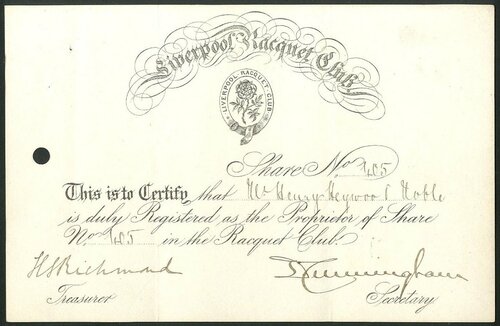 Liverpool Racquet Club
LIVERPOOL RACQUET CLUB
Share No 405
This is to Certify that Mr Henry Heywood Noble
is duly Registered as the Proprietor of Share
No 405 in the Racquet Club.
HSRichmond
Cunningham
Treasurer
Secretary